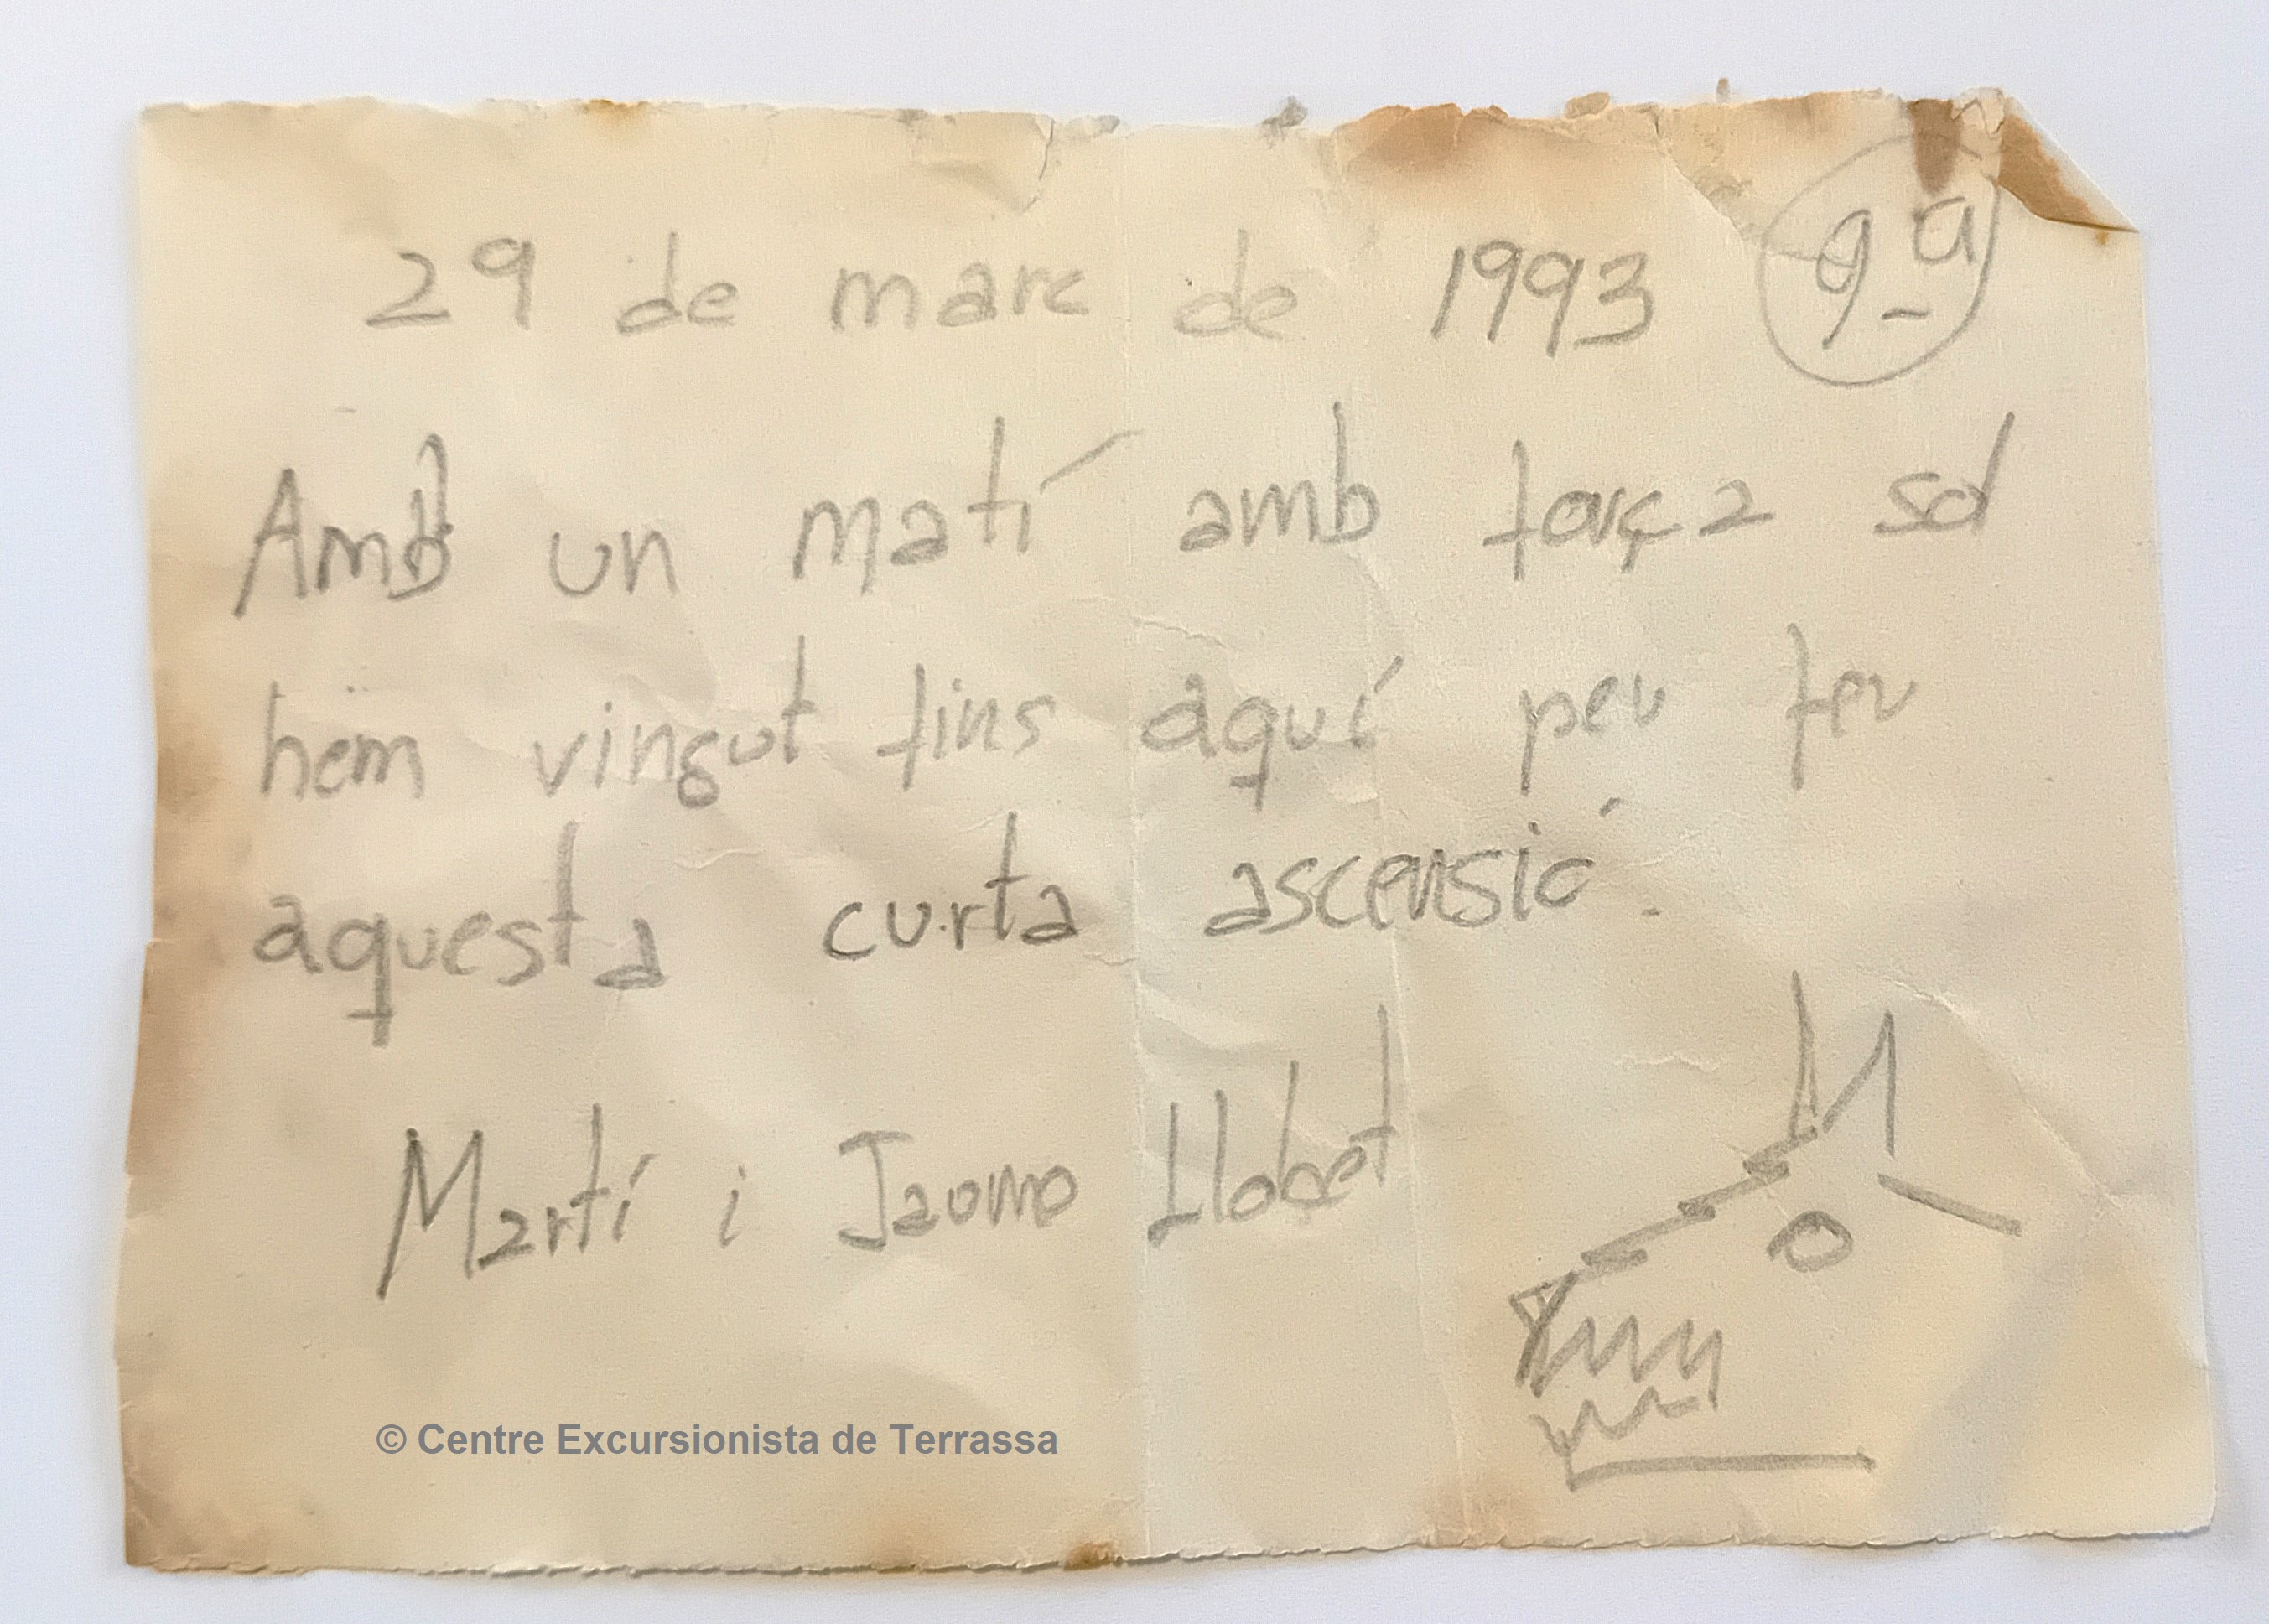 29 de marc de 1993 9a
Amb un matí amb força sol
hem vingut fins aquí per fer
aquesta curta ascensió.
Martí i Jaume Llobet
© Centre Excursionista de Terrassa